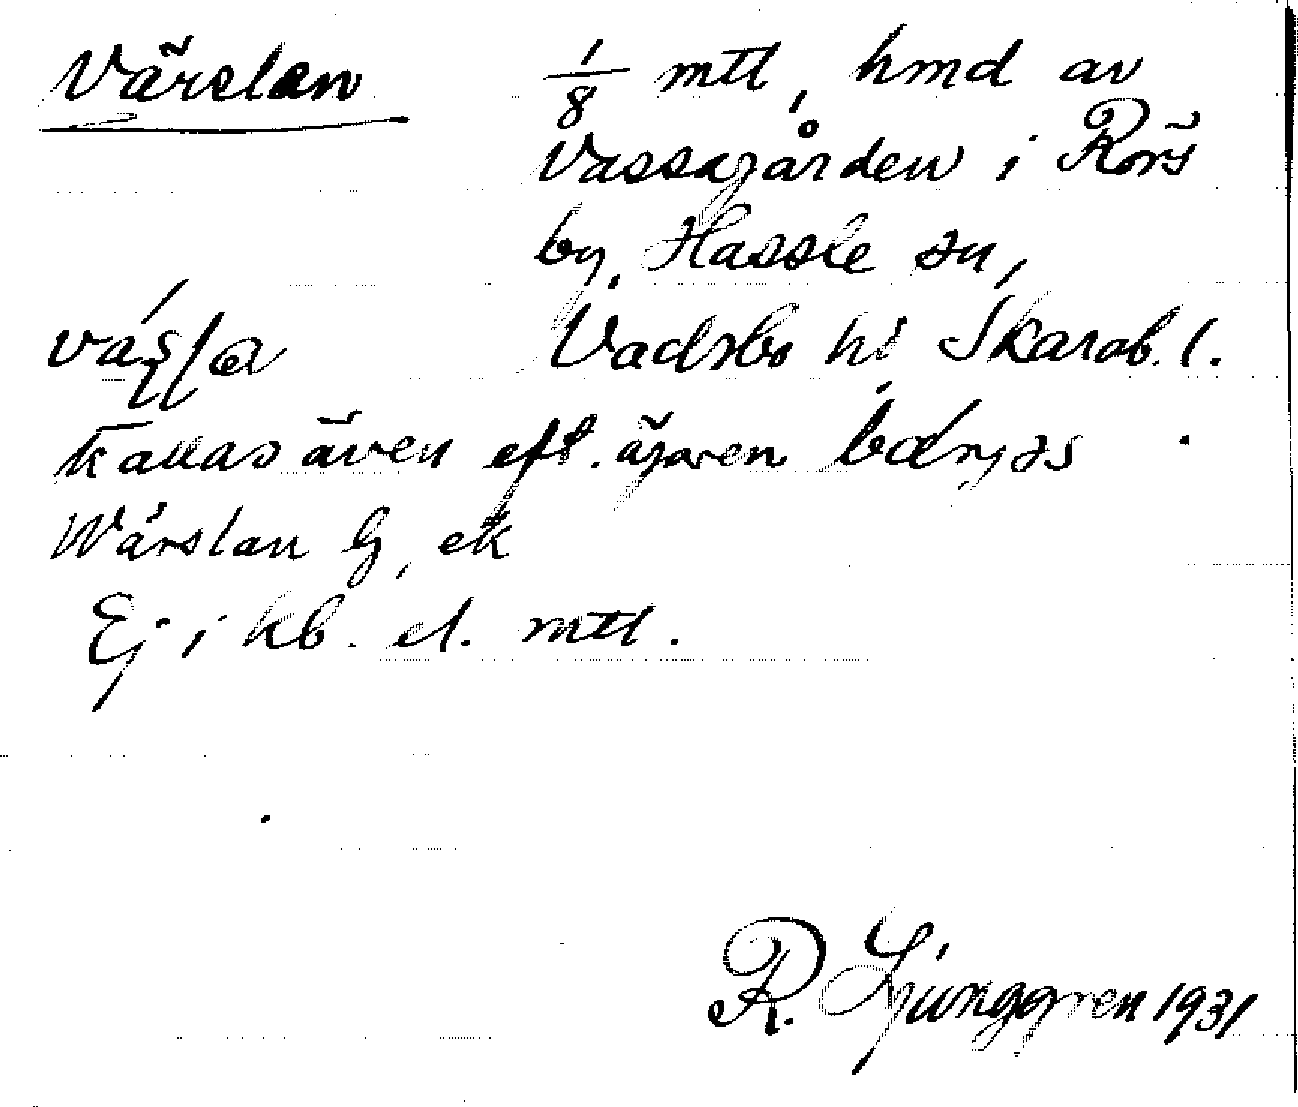 Värslan
1/8 mtl, hmd av
Vassagården i Rörs
by, Hassle sn,
Vadsbo hd Skarab. l.
Kallas även eft. ägaren
Wärslan G, ek
Ej i kb. el. mtl.
R. Ljunggren 1931